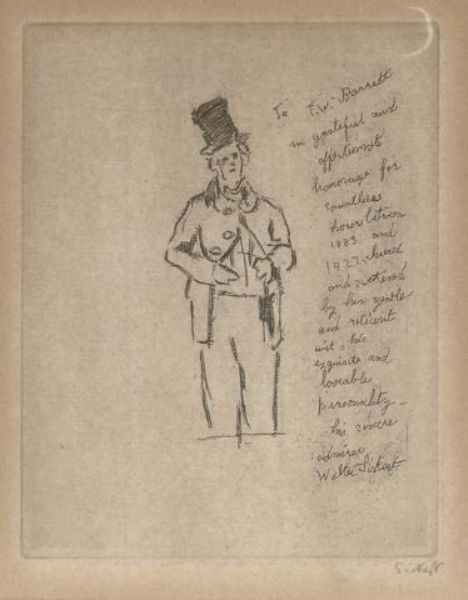 To T.W. Barrett
in grateful and
affectionate
homage for
countless
hours between
1885 and
1923 cheered
and sustained
by his gentle
and reticent
wit, his
exquisite and
loveable
personality -
his sincere
admirer
Walter Sickert
Sickert